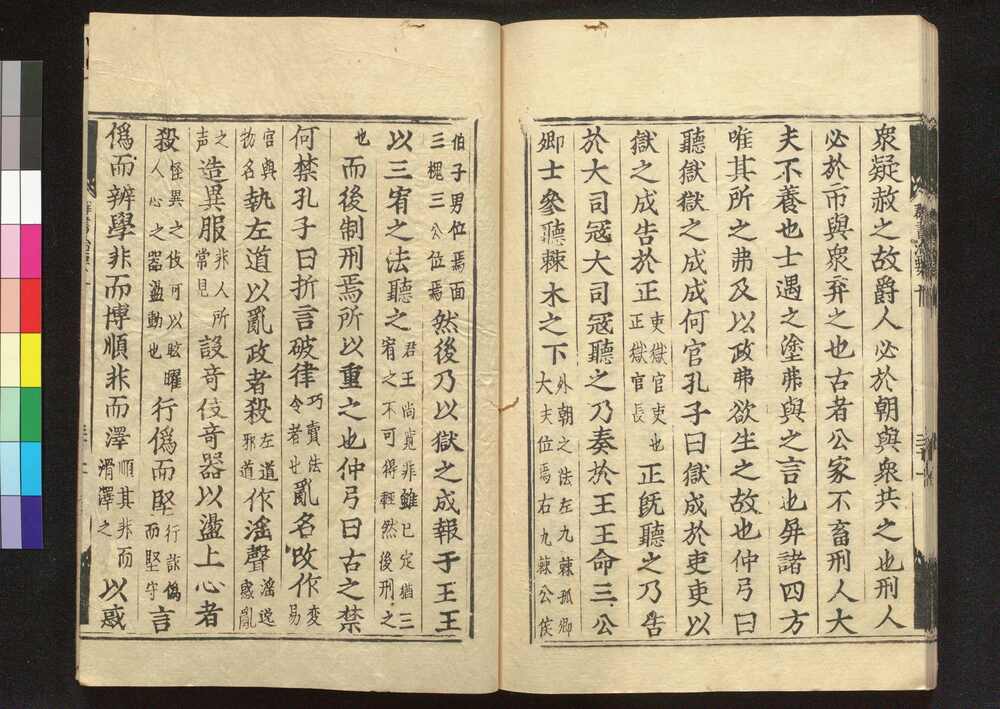 衆疑赦之故爵人必於朝與衆共之也刑人
必於市與衆弃之也古者公家不畜刑人大
夫不養也士遇之塗弗與之言也屏諸四方
唯其所之弗及以政弗欲生之故也仲弓曰
聽獄獄之成成何官孔子曰獄成於吏吏以
獄之成告於正吏獄官吏也正獄官長正既聽之乃告
於大司寇大司寇聽之乃奏於王王命三公
卿士參聽棘木之下外朝之法左九棘孤卿大夫位焉右九棘公侯
伯子男位焉面三槐三公位焉然後乃以獄之成報于王王
以三宥之法聽之君王尚寬非雖已定猶三宥之不可得輕然後刑之
也而後制刑焉所以重之也仲弓曰古之禁
何禁孔子曰折言破律巧賣法令者也亂名改作変易
官與物名執左道以亂政者殺左道邪道作滛聲滛逸惑亂
之声造異服非人所常見設竒伎竒器以盪上心者
殺怪異之伎可以眩曜人心之器盪動也行僞而堅行詐僞而堅守言
僞而辨學非而博順非而澤順其非而滑澤之以惑